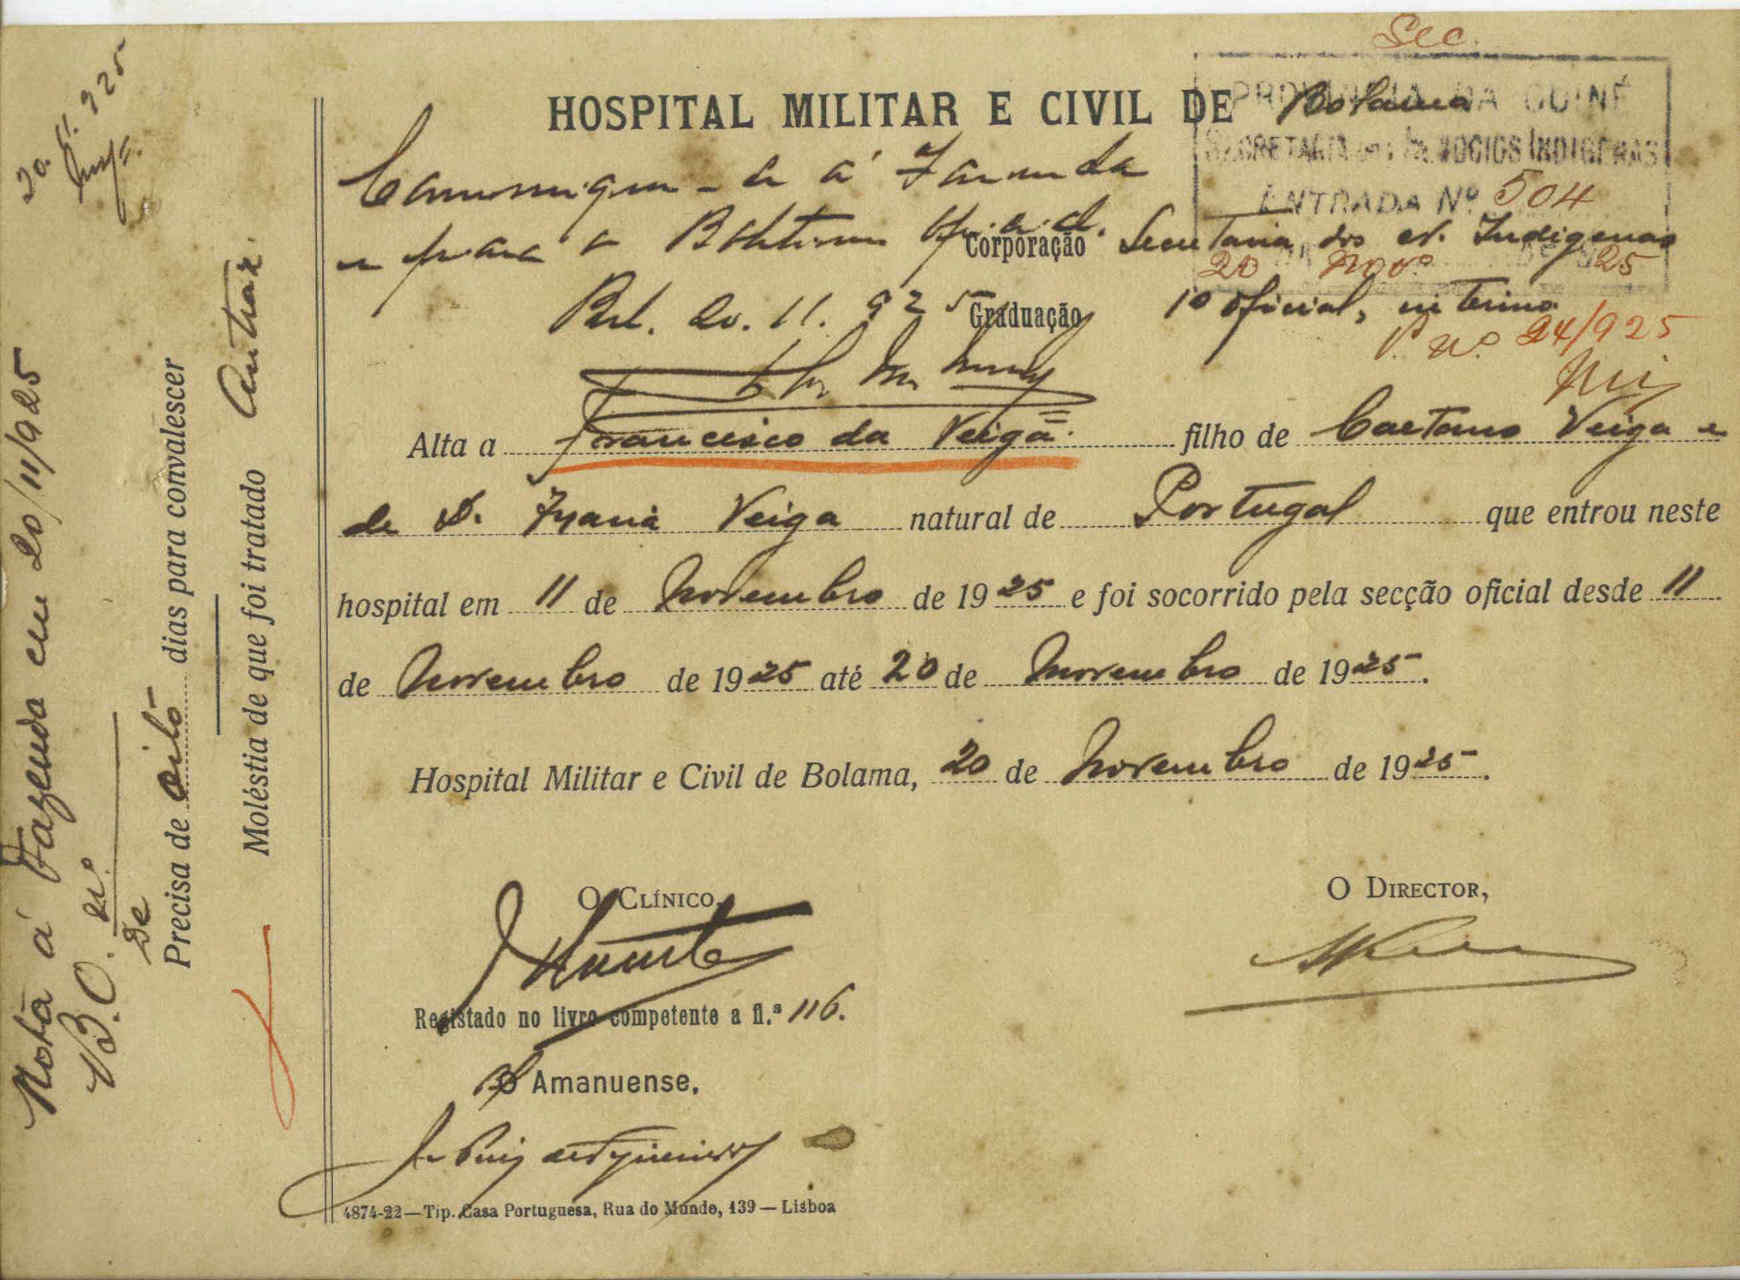 Sec.
HOSPITAL MILITAR E CIVIL DE Bolama
PROVINCIA DA GUINÉ
SECRETARIA DOS NEGOCIOS INDIGENAS
ENTRADA Nº 504
20 Nov.º 25
á Fazenda
e para o Boletim Oficial.
Corporação Secretaria dos N. Indigenas
Bol. 20.11.925
Graduação 1º oficial, interino
P. nº 24/925
Alta a Francisco da Veiga filho de Caetano Veiga e
de D. Maria Veiga natural de Portugal que entrou neste
hospital em 11 de Novembro de 1925 e foi socorrido pela secção oficial desde 11
de Novembro de 1925 até 20 de Novembro de 1925.
Hospital Militar e Civil de Bolama, 20 de Novembro de 1925.
O CLÍNICO,
O DIRECTOR,
Registado no livro competente a fl.ª 116.
O Amanuense,
4874-22—Tip. Casa Portuguesa, Rua do Mundo, 139 — Lisboa
20.11.925
Nota á Fazenda em 20/11/925
B.O. nº
De
Precisa de oito dias para convalescer
Moléstia de que foi tratado Antraz.